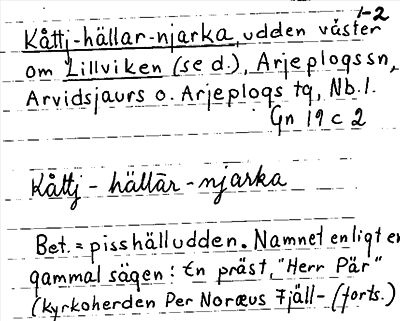 1-2
Kåttj-hällar-njarka, udden väster
om Lillviken (se d.), Arjeplogs sn,
Arvidsjaurs o. Arjeplogs tg, Nb. l.
Gn 19 c 2
Kåttj - hällār - njarka
Bet. = pisshälludden. Namnet enligt en
gammal sägen: En präst, "Herr Pär"
(kyrkoherden Per Noræus Fjäll- (forts.)